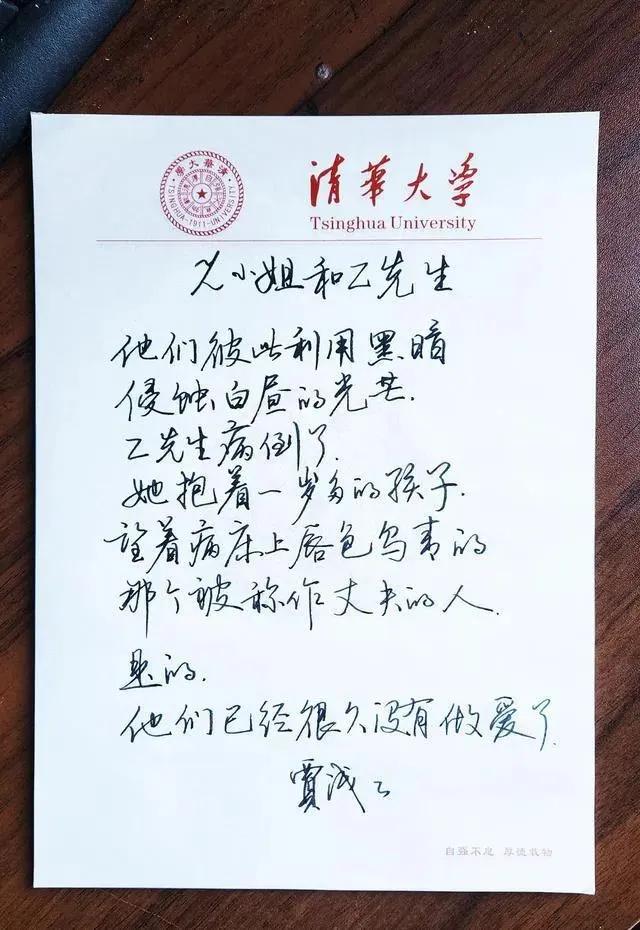 學大華清
TSINGHUA-1911-UNIVERSITY
清华大学
Tsinghua University
小姐和乙先生
他们彼此利用黑暗
侵蚀白昼的光芒.
乙先生病倒了.
她抱着一岁多的孩子.
望着病床上唇色乌青的
那个被称作丈夫的人.
是的.
他们已经很久没有做爱了.
贾浅
自强不息 厚德载物